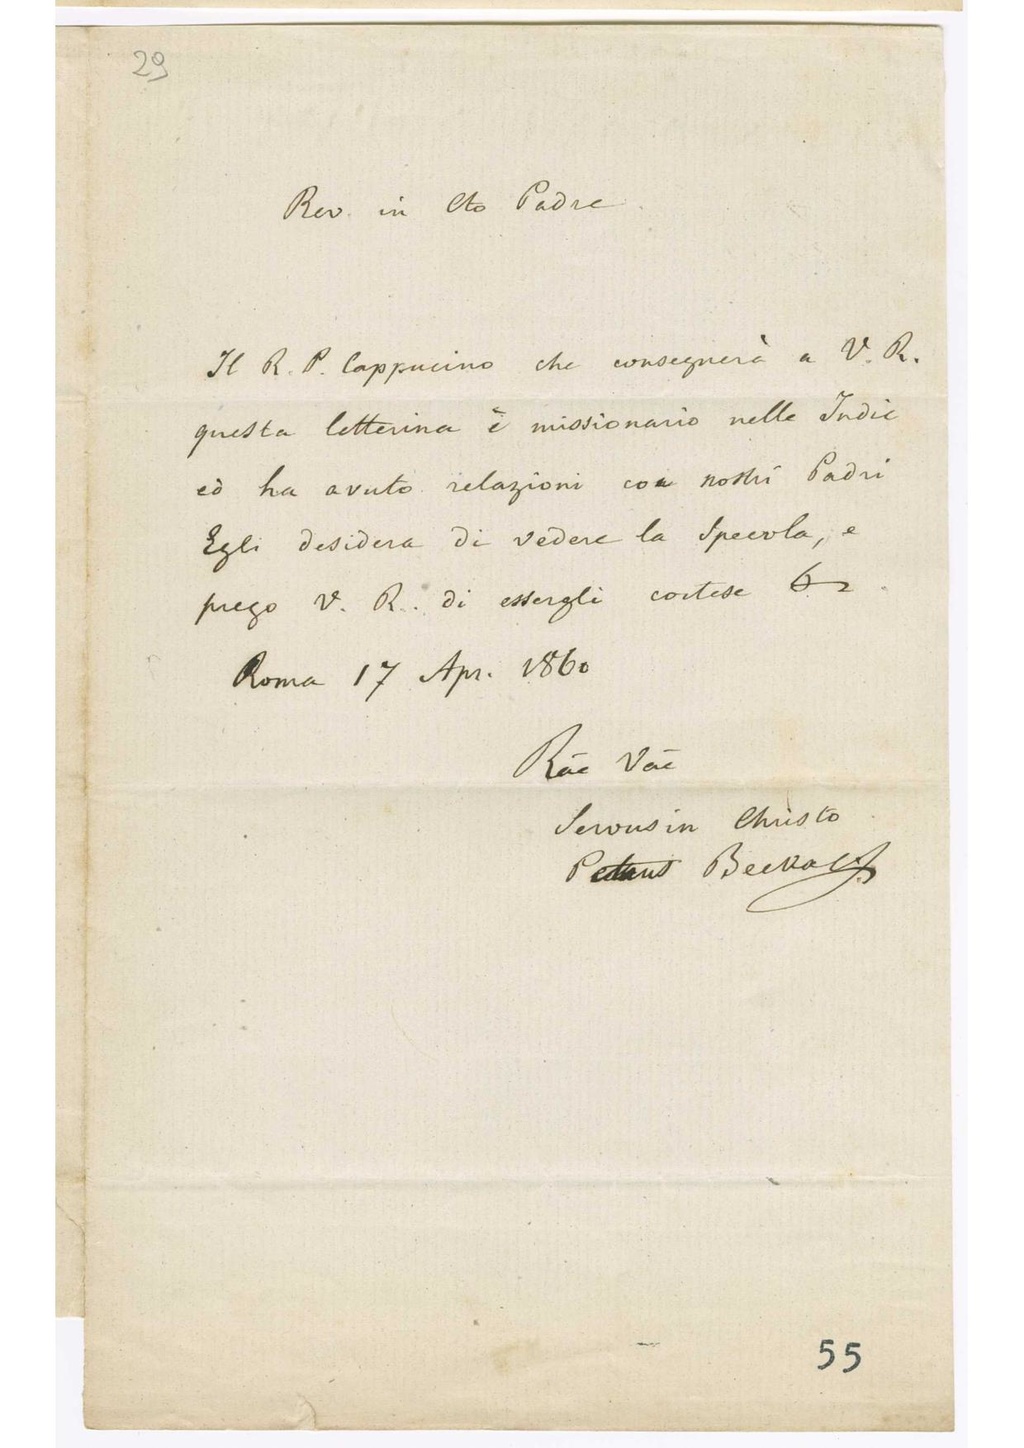 29
Rev. in Cto Padre.
Il R. P. Cappucino che consegnerà a V. R.
questa letterina è missionario nelle Indie
ed ha avuto relazioni con nostri Padri
Egli desidera di vedere la Specola, e
prego V. R. di essergli cortese
Roma 17 Apr. 1860
Rāe Vāe
Servus in Christo
Petrus Beckx
55